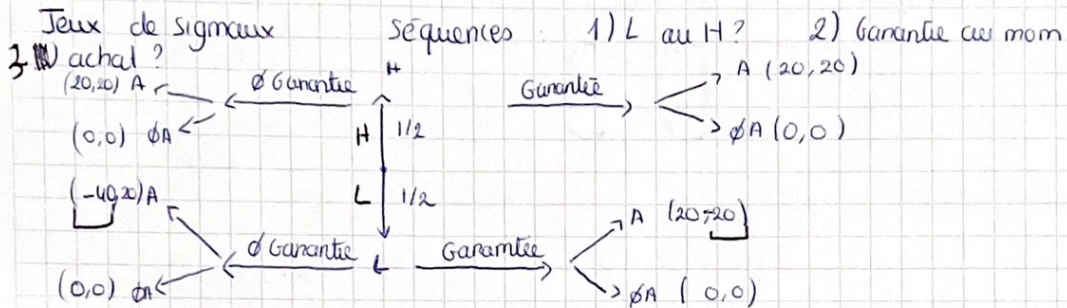 Jeux de signaux séquences : 1) L ou H ? 2) Garantie ou non
3 achat ?
(20,20) A Ø Garantie H Garantie A (20,20)
(0,0) ØA H 1/2 ØA (0,0)
(-40,20) A L 1/2 A (20,-20)
Ø Garantie L Garantie
(0,0) ØA ØA (0,0)